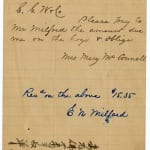 Please pay to
Mr Milford the amount due
me on the hogs & oblige
Mrs Mary McConnell
Recd on the above $15.35
C W Milford